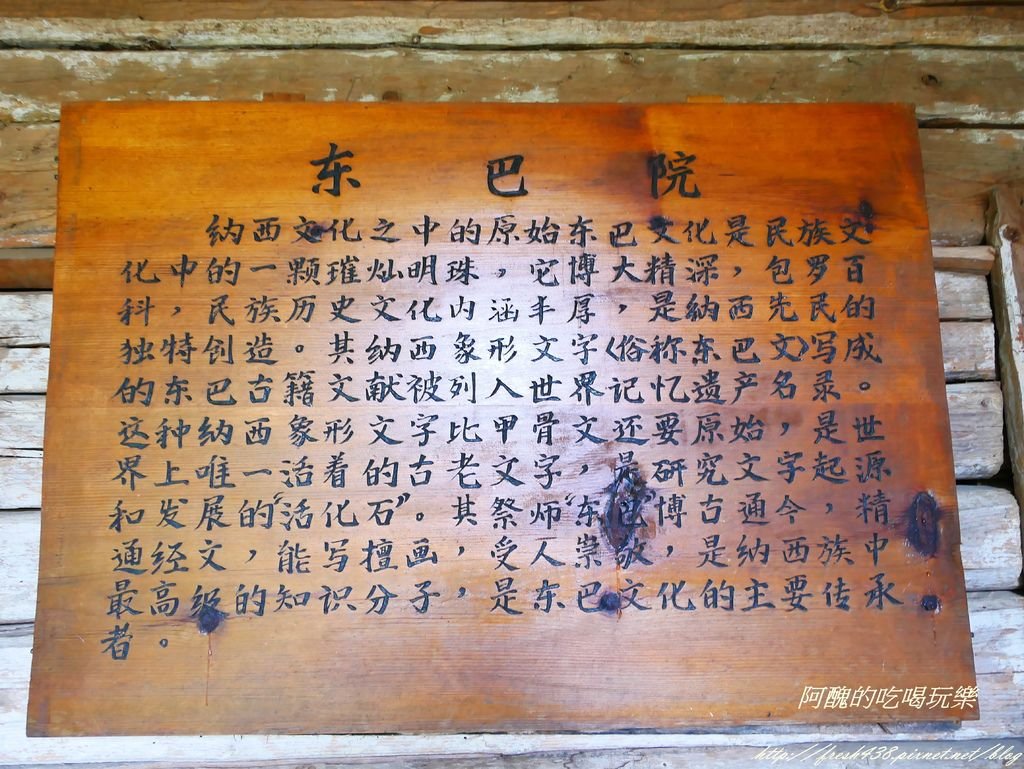 东巴院
纳西文化之中的原始东巴文化是民族文
化中的一颗璀灿明珠，它博大精深，包罗百
科，民族历史文化内涵丰厚，是纳西先民的
独特创造。其纳西象形文字〈俗称东巴文〉写成
的东巴古籍文献被列入世界记忆遗产名录。
这种纳西象形文字比甲骨文还要原始，是世
界上唯一活着的古老文字，是研究文字起源
和发展的“活化石”。其祭师“东巴”博古通今，精
通经文，能写擅画，受人崇敬，是纳西族中
最高级的知识分子，是东巴文化的主要传承
者。
阿醜的吃喝玩樂
http://fresh438.pixnet.net/blog